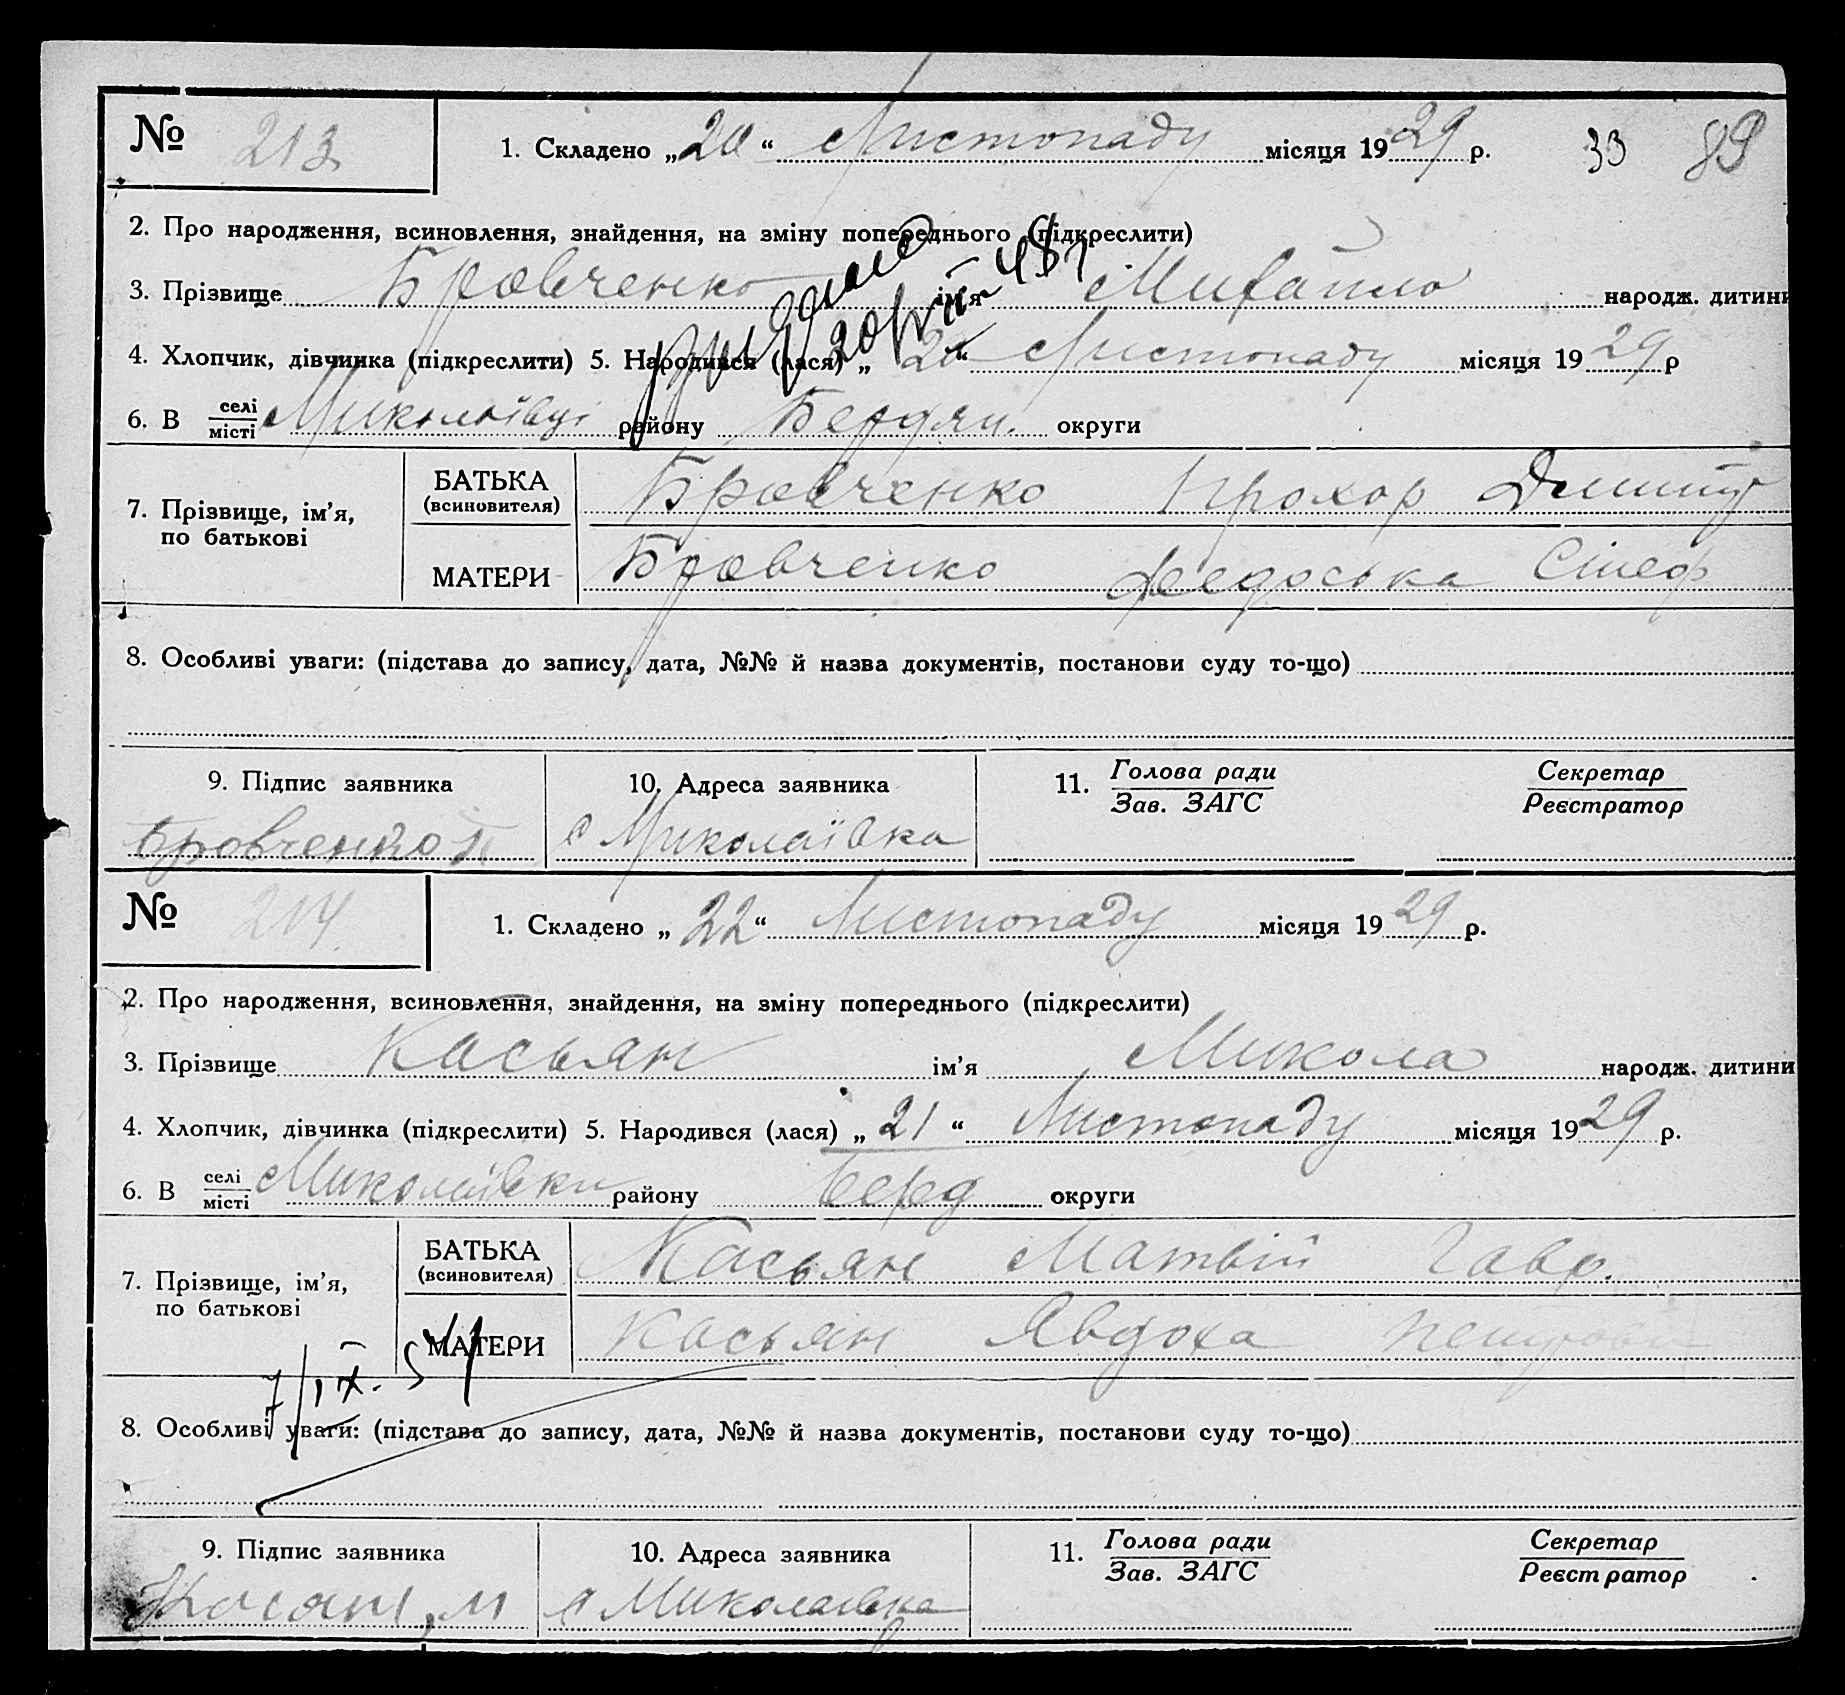 № 213 1. Складено „20“ Листопаду місяця 1929 р. 33 89
2. Про народження, всиновлення, знайдення, на зміну попереднього (підкреслити)
3. Прізвище Бровченко ім'я Михайло народж. дитини
4. Хлопчик, дівчинка (підкреслити) 5. Народився (лася) „20“ Листопаду місяця 1929 р
6. В селі/місті району Бердян. округи
7. Прізвище, ім'я, по батькові
БАТЬКА (всиновителя) Бровченко Прохор Дмит
МАТЕРИ Бровченко Федоська
8. Особливі уваги: (підстава до запису, дата, №№ й назва документів, постанови суду то-що)
9. Підпис заявника 10. Адреса заявника 11. Голова ради/Зав. ЗАГС Секретар/Реєстратор
Бровченко П с Миколаївка
№ 214. 1. Складено „22“ Листопаду місяця 1929 р.
2. Про народження, всиновлення, знайдення, на зміну попереднього (підкреслити)
3. Прізвище Касьян ім'я Микола народж. дитини
4. Хлопчик, дівчинка (підкреслити) 5. Народився (лася) „21“ Листопаду місяця 1929 р.
6. В селі/місті Миколаївки району Берд округи
7. Прізвище, ім'я, по батькові
БАТЬКА (всиновителя) Касьян Матвій Гавр.
МАТЕРИ Касьян Явдоха
7/IX. 51
8. Особливі уваги: (підстава до запису, дата, №№ й назва документів, постанови суду то-що)
9. Підпис заявника 10. Адреса заявника 11. Голова ради/Зав. ЗАГС Секретар/Реєстратор
Касян, М с Миколаївка